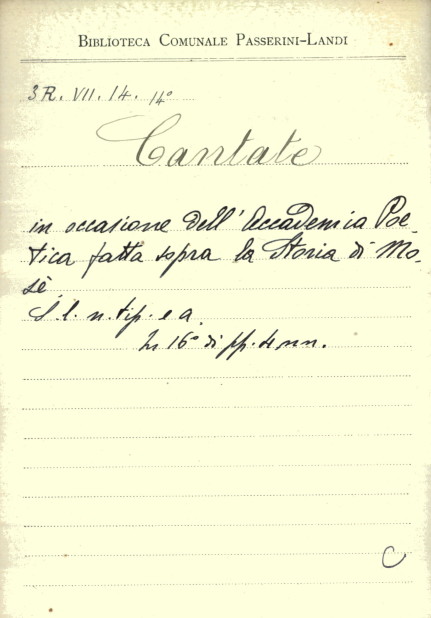 BIBLIOTECA COMUNALE PASSERINI-LANDI
3R. VII. 14. 14°
Cantate
in occasione dell'Accademia Poe-
tica fatta sopra la Storia di Mo-
sè.
S. l. n. tip. e a.
In 16° di pp. 4 nnn.
C